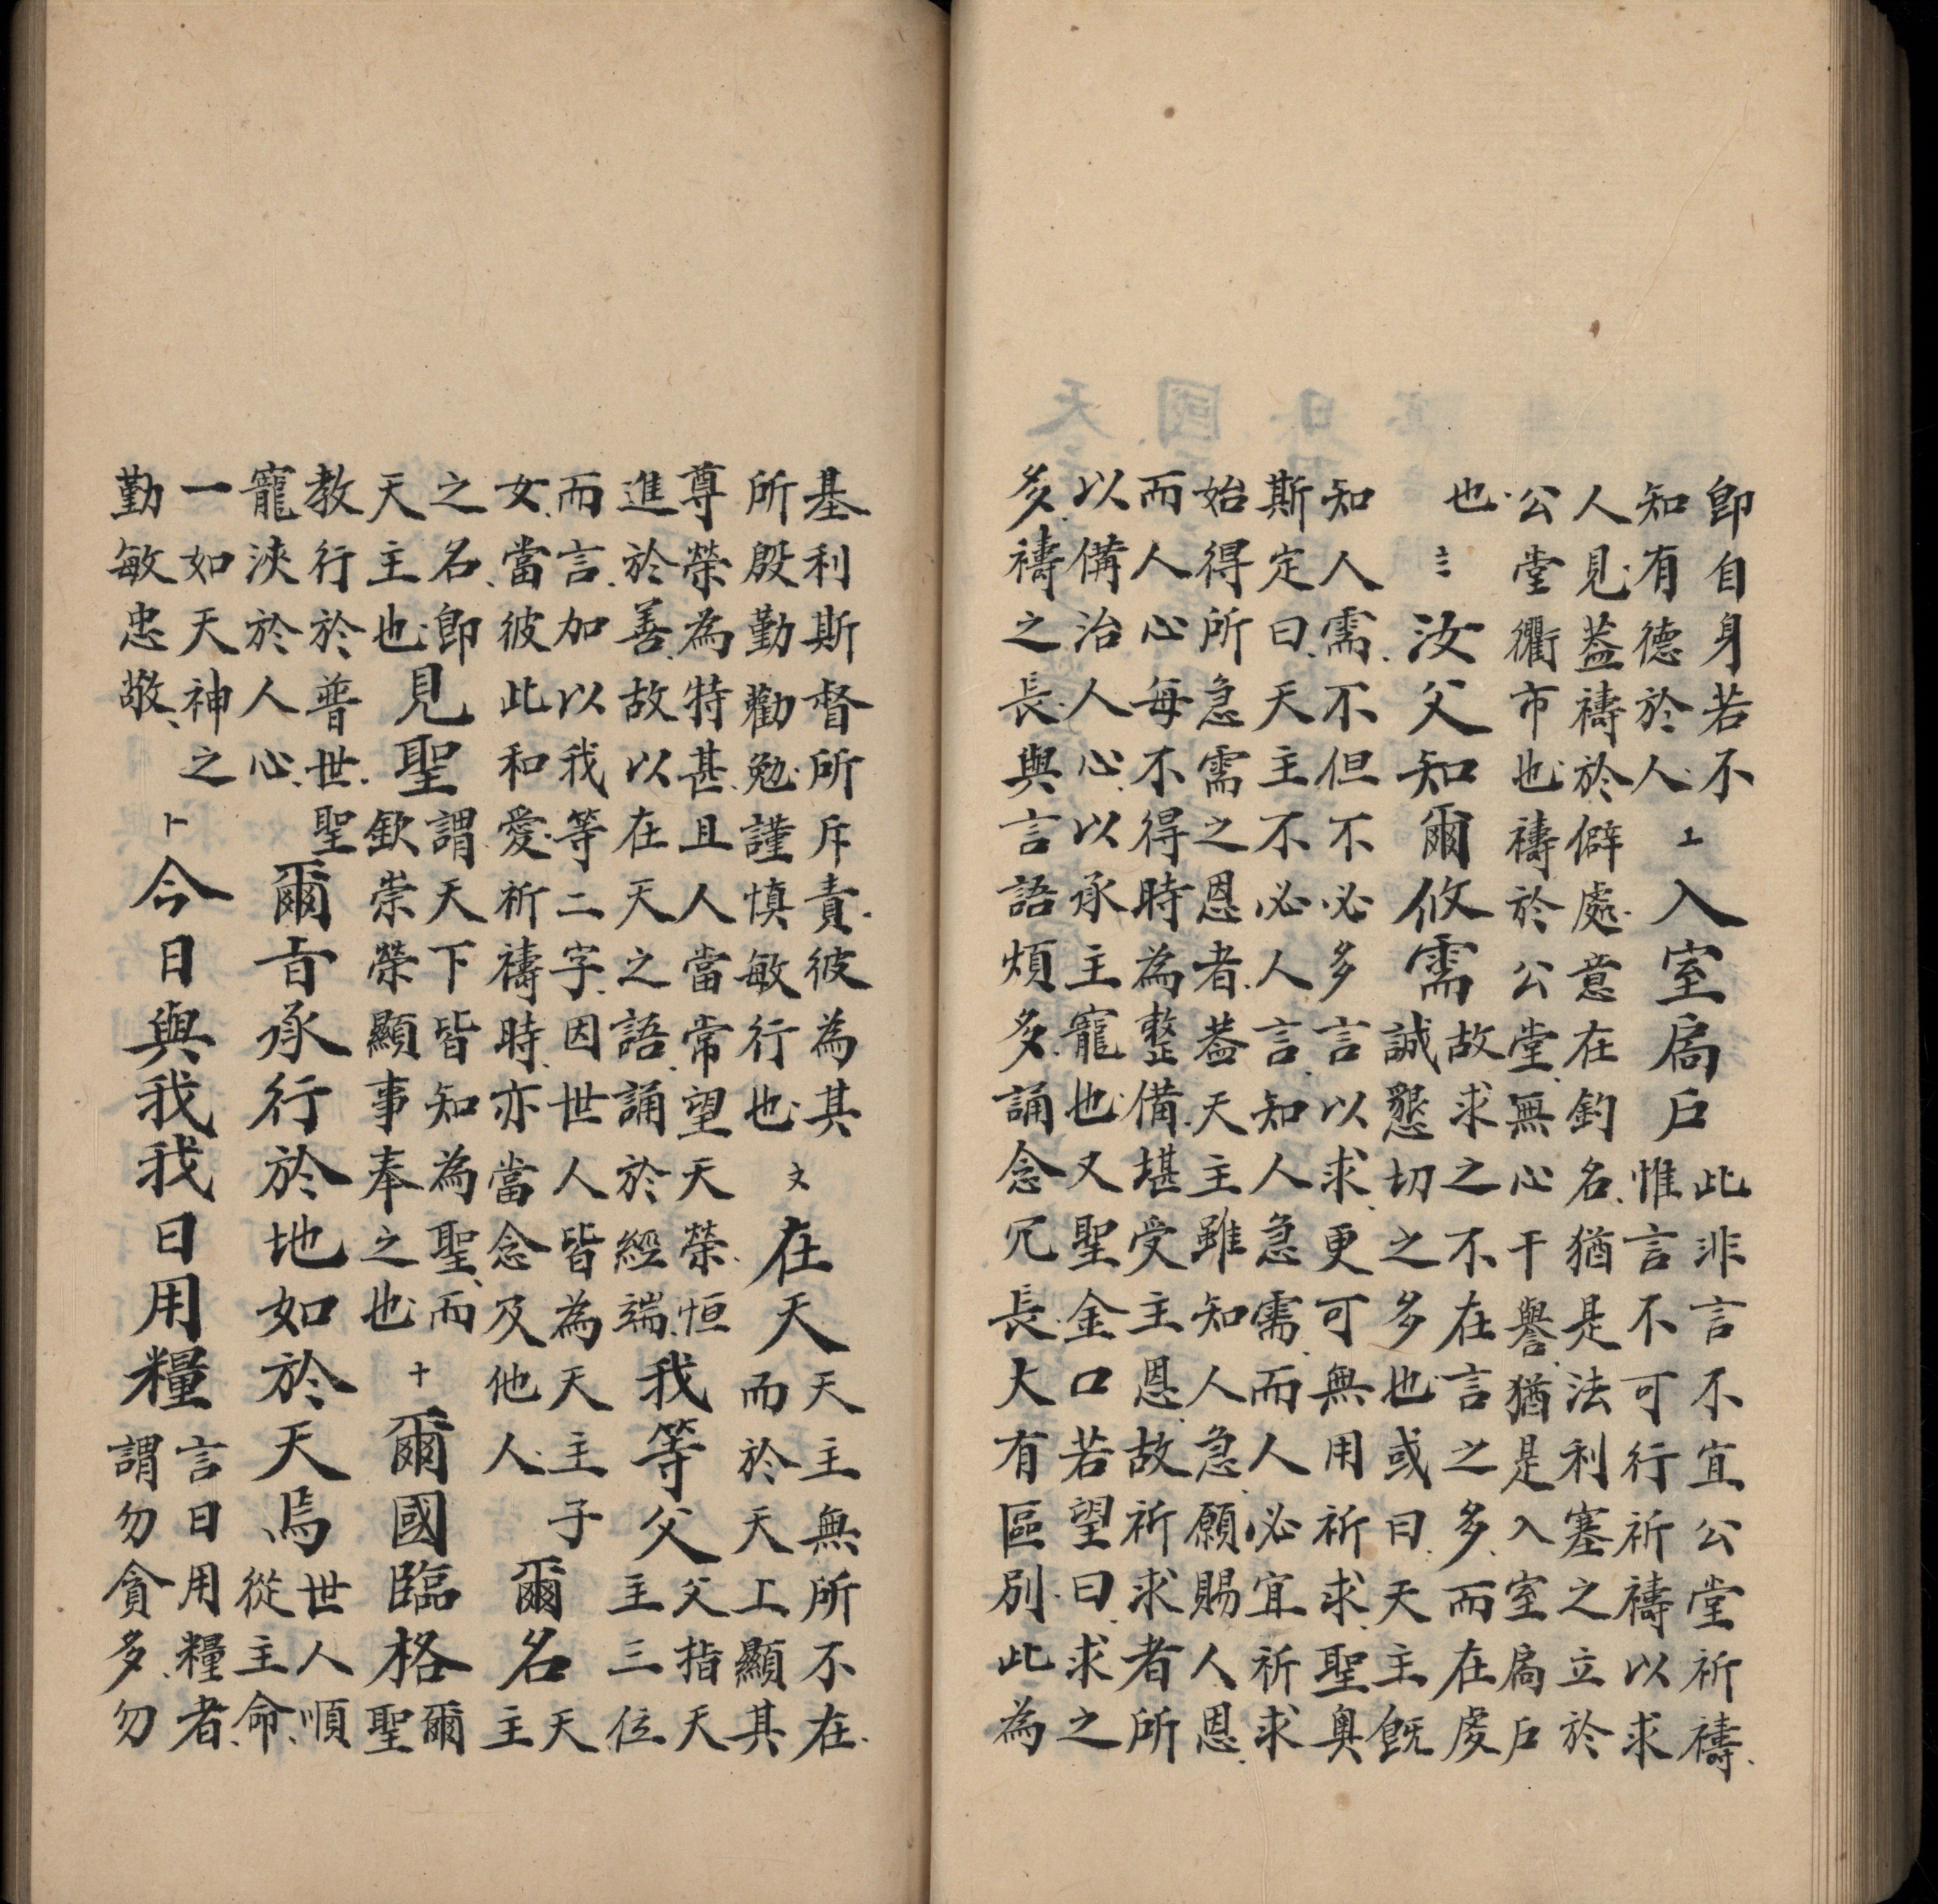 即自身若不
知有德於人
〦入室扃戶
此非言不宜公堂祈禱
惟言不可行祈禱以求
人見蓋禱於僻處意在釣名猶是法利塞之立於
公堂衢市也禱於公堂無心干譽猶是入室扃戶
也
〨汝父知爾攸需
故求之不在言之多而在虔
誠懇切之多也或曰天主既
知人需不但不必多言以求更可無用祈求聖奧
斯定曰天主不必人言知人急需而人必宜祈求
始得所急需之恩者蓋天主雖知人急願賜人恩
而人心每不得時為整備堪受主恩故祈求者所
以備治人心以承主寵也又聖金口若望曰求之
多禱之長與言語煩多誦念冗長大有區別此為
基利斯督所斥責彼為其
所殷勤勸勉謹慎敏行也
〩在天
天主無所不在
而於天上顯其
尊榮為特甚且人當常望天榮恒
進於善故以在天之語誦於經端
我等父
父指天
主三位
而言加以我等二字因世人皆為天主子
女當彼此和愛祈禱時亦當念及他人
爾名
天
主
之名即
天主也
見聖
謂天下皆知為聖而
欽崇榮顯事奉之也
十爾國臨格
爾
聖
教行於普世聖
寵浹於人心
爾旨承行於地如於天焉
世人順
從主命
一如天神之
勤敏忠敬
⺊今日與我我日用糧
言日用糧者
謂勿貪多勿